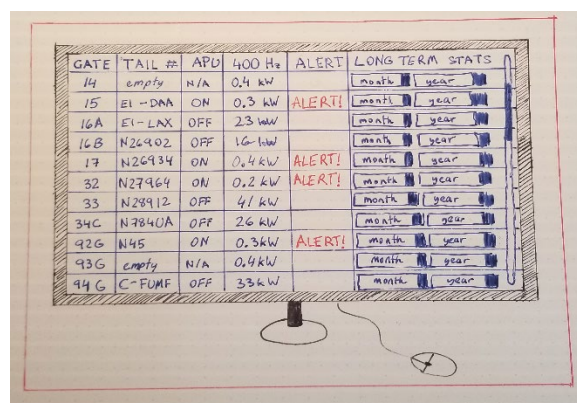 GATE TAIL # APU 400 Hz ALERT LONG TERM STATS
14 empty N/A 0.4 kW month year
15 EI-DAA ON 0.3 kW ALERT! month year
16A EI-LAX OFF 23 kW month year
16B N26902 OFF 16 kW month year
17 N26934 ON 0.4 kW ALERT! month year
32 N27964 ON 0.2 kW ALERT! month year
33 N28912 OFF 41 kW month year
34C N784UA OFF 26 kW month year
92G N45 ON 0.3kW ALERT! month year
93G empty N/A 0.4kW month year
94G C-FUMF OFF 33kW month year